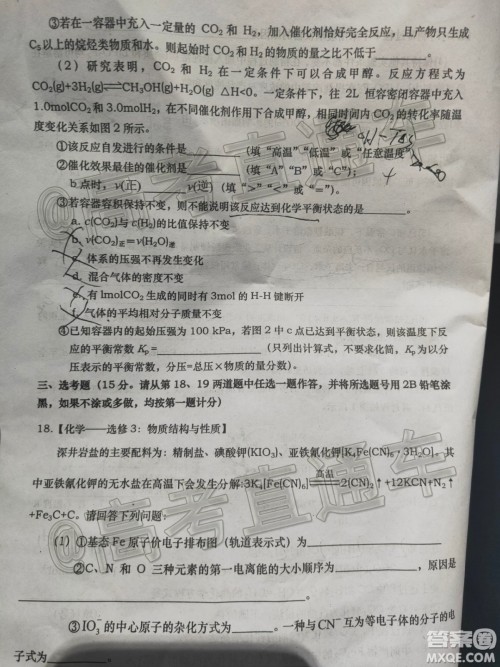 ③若在一容器中充入一定量的 CO₂ 和 H₂，加入催化剂恰好完全反应，且产物只生成
C₅以上的烷烃类物质和水。则起始时 CO₂ 和 H₂ 的物质的量之比不低于________。
（2）研究表明，CO₂ 和 H₂ 在一定条件下可以合成甲醇。反应方程式为
CO₂(g)+3H₂(g)⇌CH₃OH(g)+H₂O(g) △H<0。一定条件下，往 2L 恒容密闭容器中充入
1.0molCO₂ 和 3.0molH₂，在不同催化剂作用下合成甲醇，相同时间内 CO₂ 的转化率随温
度变化关系如图 2 所示。
①该反应自发进行的条件是________（填“高温”“低温”或“任意温度”）
②催化效果最佳的催化剂是________（填“A”“B”或“C”）；
b 点时，v(正)________v(逆)（填“>”“<”或“=”）。
③若容器容积保持不变，则不能说明该反应达到化学平衡状态的是________。
a. c(CO₂)与 c(H₂)的比值保持不变
b. v(CO₂)正＝v(H₂O)逆
c. 体系的压强不再发生变化
d. 混合气体的密度不变
e. 有 1molCO₂ 生成的同时有 3mol 的 H-H 键断开
f. 气体的平均相对分子质量不变
④已知容器内的起始压强为 100 kPa，若图 2 中 c 点已达到平衡状态，则该温度下反
应的平衡常数 Kp＝________（只列出计算式，不要求化简，Kp 为以分
压表示的平衡常数，分压=总压×物质的量分数）。
三、选考题（15 分。请从第 18、19 两道题中任选一题作答，并将所选题号用 2B 铅笔涂
黑，如果不涂或多做，均按第一题计分）
18.【化学——选修 3：物质结构与性质】
深井岩盐的主要配料为：精制盐、碘酸钾(KIO₃)、亚铁氰化钾[K₄Fe(CN)₆・3H₂O]。其
中亚铁氰化钾的无水盐在高温下会发生分解:3K₄[Fe(CN)₆] 高温 2(CN)₂↑+12KCN+N₂↑
+Fe₃C+C。请回答下列问题：
（1）①基态 Fe 原子价电子排布图（轨道表示式）为________
②C、N 和 O 三种元素的第一电离能的大小顺序为________，原因是
________。
③IO₃⁻的中心原子的杂化方式为________。一种与CN⁻互为等电子体的分子的电
子式为________。
@高考直通车
@高考直通车
答案圈
MXQE.COM